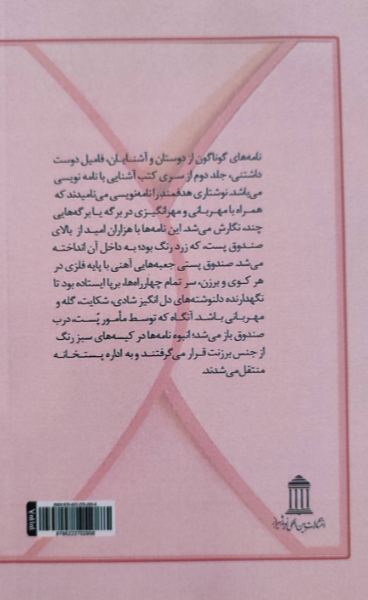 نامه‌های گوناگون از دوستان و آشنایان، فامیل دوست
داشتنی، جلد دوم از سری کتب آشنایی با نامه نویسی
می‌باشد. نوشتاری هدفمند را نامه‌نویسی می‌نامیدند که
همراه با مهربانی و مهرانگیزی در برگه یا برگه‌هایی
چند، نگارش می‌شد. این نامه‌ها با هزاران امید از بالای
صندوق پست، که زرد رنگ بود؛ به داخل آن انداخته
می‌شد. صندوق پستی جعبه‌هایی آهنی با پایه فلزی در
هر کوی و برزن، سر تمام چهارراه‌ها، برپا ایستاده بود تا
نگهدارنده دلنوشته‌های دل انگیز شادی، شکایت، گله و
مهربانی باشد. آنگاه که توسط مأمور پُست، درب
صندوق باز می‌شد؛ انبوه نامه‌ها در کیسه‌های سبز رنگ
از جنس برزنت قرار می‌گرفتند و به اداره پستخانه
منتقل می‌شدند.